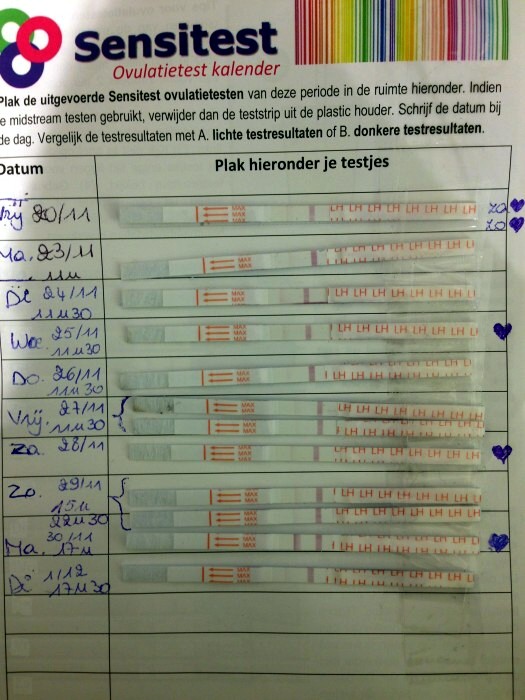 Sensitest
Ovulatietest kalender
Plak de uitgevoerde Sensitest ovulatietesten van deze periode in de ruimte hieronder. Indien
e midstream testen gebruikt, verwijder dan de teststrip uit de plastic houder. Schrijf de datum bij
de dag. Vergelijk de testresultaten met A. lichte testresultaten of B. donkere testresultaten.
Datum Plak hieronder je testjes
Vrij 20/11 MAX MAX LH LH LH LH LH LH LH LH
Ma. 23/11 MAX MAX LH LH LH LH LH LH LH
11u
Di 24/11 MAX MAX LH LH LH LH LH LH LH
11u30
Woe 25/11 MAX MAX LH LH LH LH LH LH LH
11u30
Do. 26/11 MAX MAX LH LH LH LH LH LH LH
11u30
Vrij. 27/11 MAX MAX LH LH LH LH LH LH LH
11u30 MAX MAX LH LH LH LH LH LH LH
Za. 28/11 MAX MAX LH LH LH LH LH LH LH
Zo. 29/11 MAX MAX LH LH LH LH LH LH LH
15u
22u30 MAX MAX LH LH LH LH LH LH LH
30/11
Ma. 17u MAX MAX LH LH LH LH LH LH LH
Di 1/12 MAX MAX LH LH LH LH LH LH LH
17u30